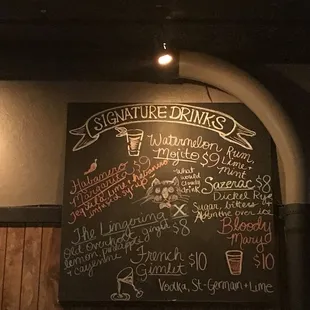 SIGNATURE DRINKS
Watermelon
Mojito $9
Rum,
lime +
mint
Habanero
Margarita $9
tequila, lime, habanero
infused syrup
what
would
cat
drink
Sazerac $8
Dickel Rye
Sugar, bitters
Absinthe over ice
The Lingering
Old Overholt, ginger $8
lemon, pineapple
+ cayenne
Bloody
Mary
$10
French
Gimlet $10
Vodka, St-Germain + Lime